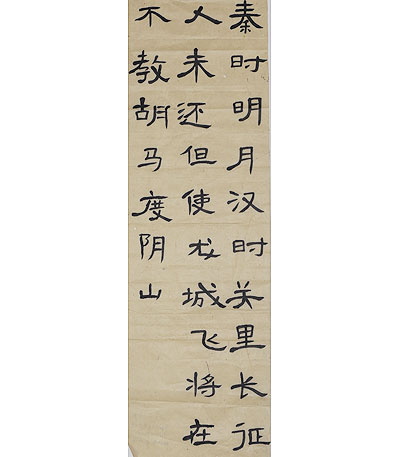 秦时明月汉时关里长征
人未还但使龙城飞将在
不教胡马度阴山